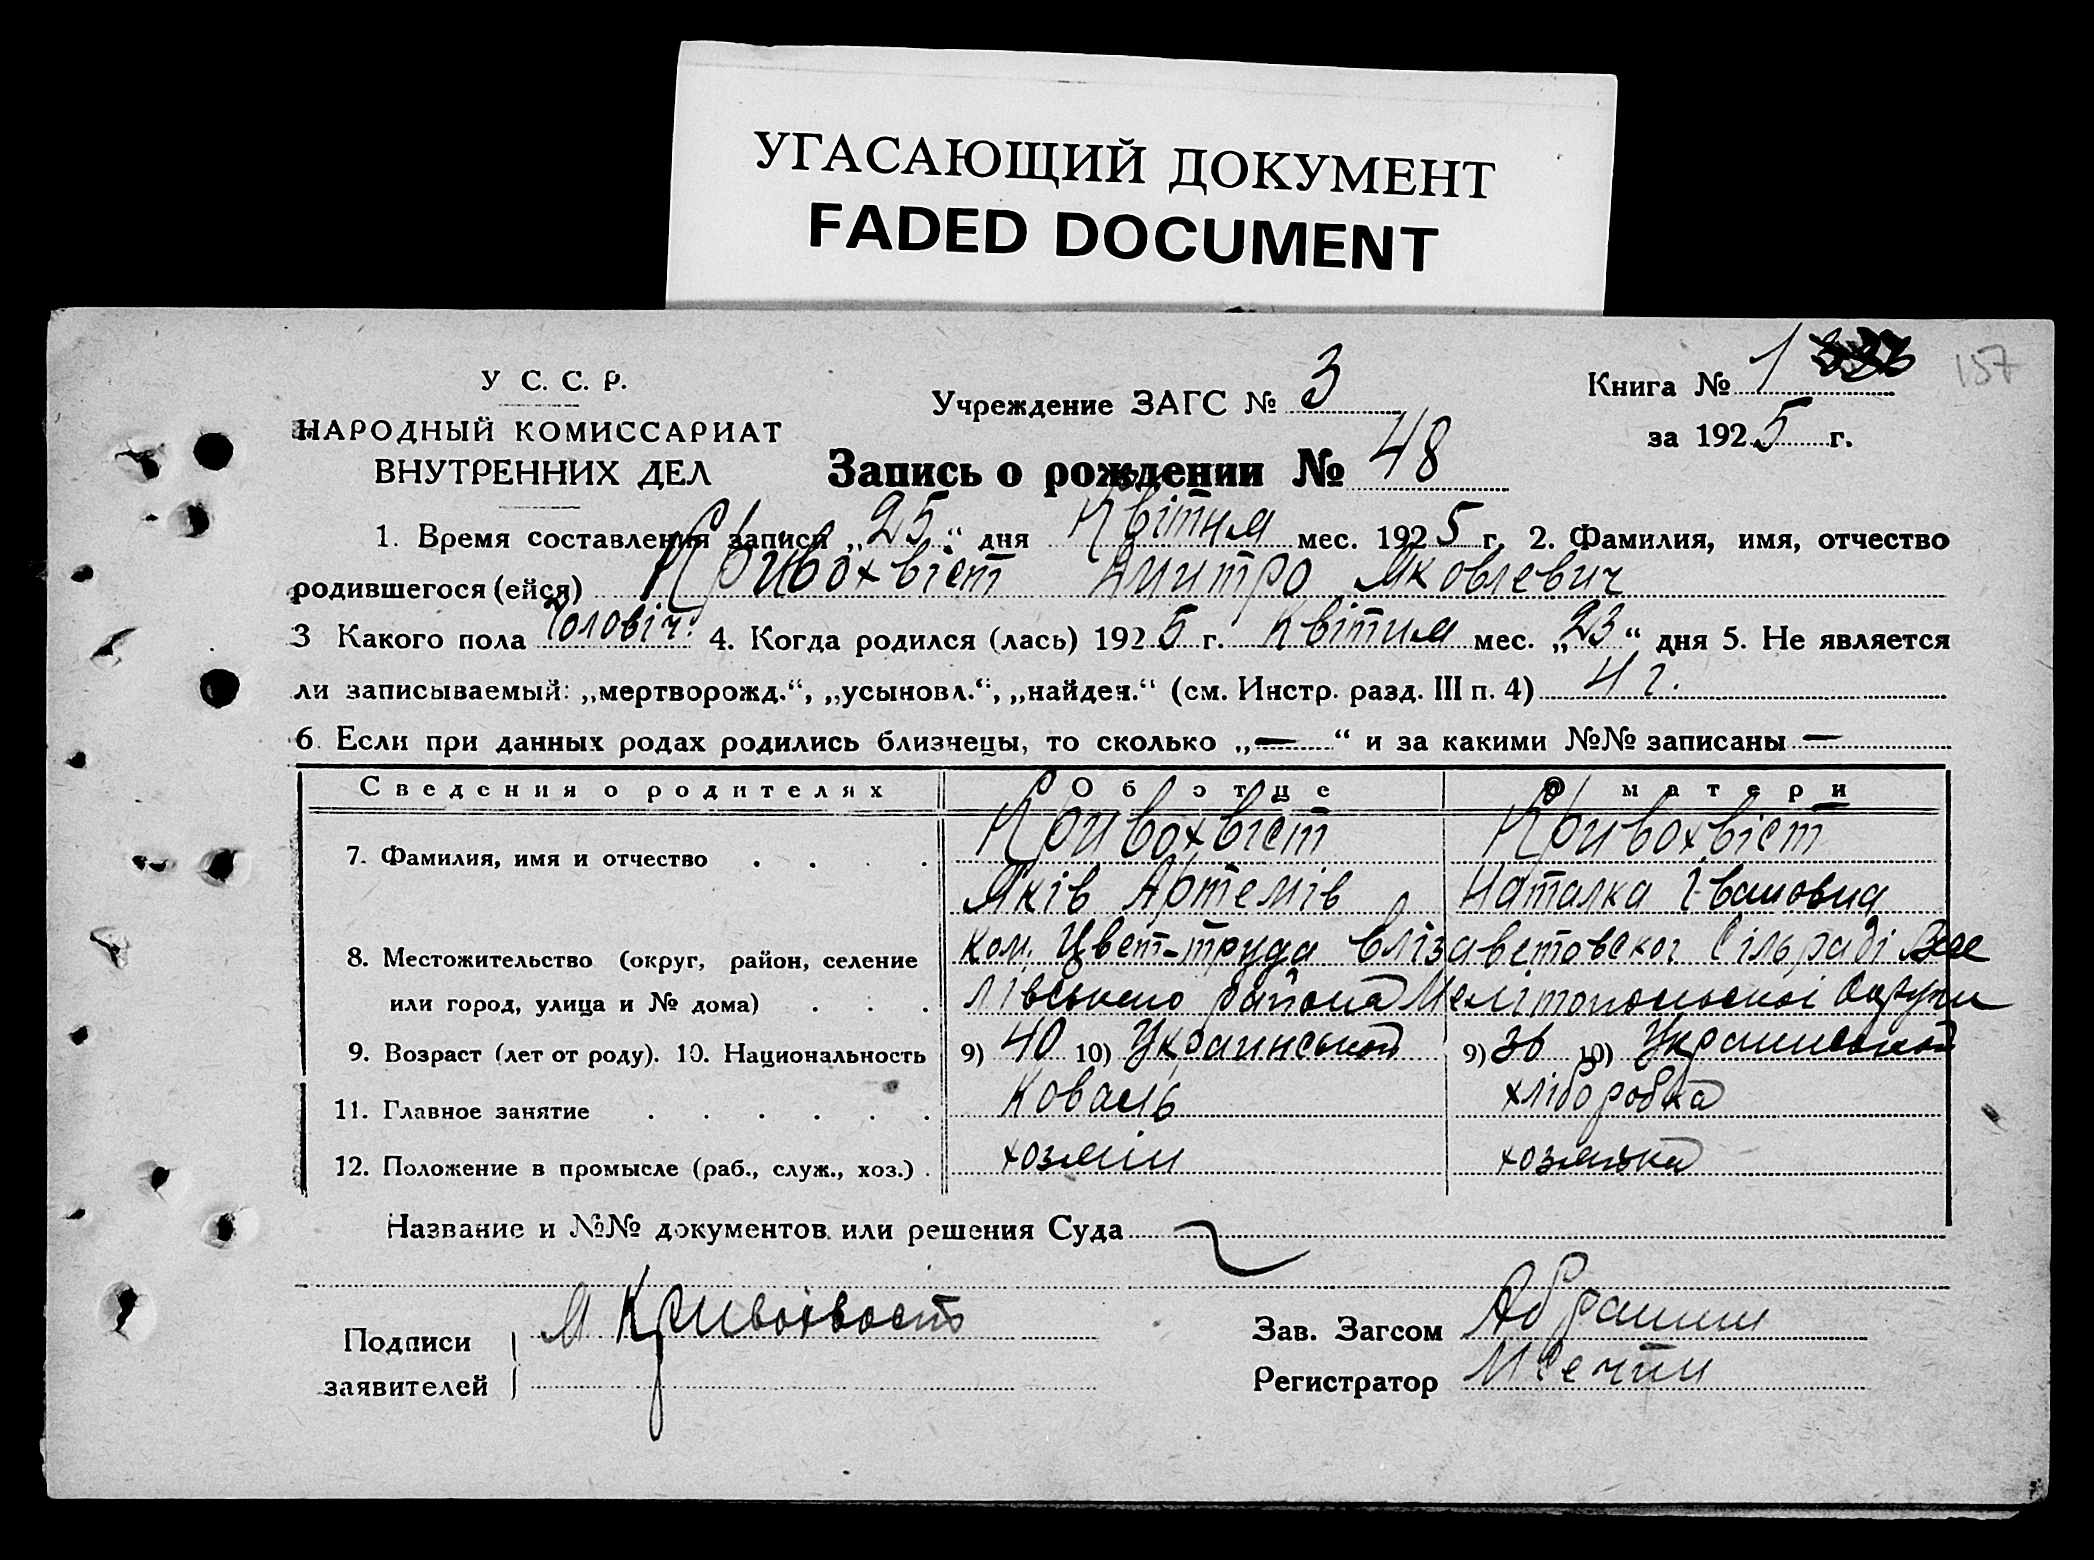 УГАСАЮЩИЙ ДОКУМЕНТ
FADED DOCUMENT
У С. С. Р.
НАРОДНЫЙ КОМИССАРИАТ
ВНУТРЕННИХ ДЕЛ
Учреждение ЗАГС № 3
Книга № 1
157
за 1925 г.
Запись о рождении № 48
1. Время составления записи „25“ дня Квітня мес. 1925 г. 2. Фамилия, имя, отчество
родившегося (ейся) Кривохвіст Дмитро Яковлевич
3 Какого пола Чоловіч. 4. Когда родился (лась) 1925 г. Квітня мес. „23“ дня 5. Не является
ли записываемый: „мертворожд.“, „усыновл.“, „найден.“ (см. Инстр. разд. III п. 4)
6. Если при данных родах родились близнецы, то сколько „—“ и за какими №№ записаны —
Сведения о родителях Об отце О матери
7. Фамилия, имя и отчество . . . . Кривохвіст Кривохвіст
Яків Артемів Наталка Івановна
8. Местожительство (округ, район, селение ком. Цвет-труда Єлізаветовског Сільраді
или город, улица и № дома) . . . лівського района Мелітопольської Округи
9. Возраст (лет от роду). 10. Национальность 9) 40 10) Украинської 9) 36 10) Украинської
11. Главное занятие . . . . . . Коваль хліборобка
12. Положение в промысле (раб., служ., хоз.) . хозяїн хозяйка
Название и №№ документов или решения Суда
Подписи Я Кривохвость
заявителей
Зав. Загсом
Регистратор